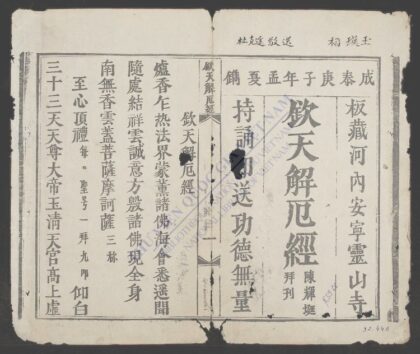 成泰庚子年孟夏鐫
板藏河內安寧靈山寺
欽天解厄經
陳輝
拜刊
持誦 送功德無量
欽天解厄經
欽天解厄經
爐香乍熱法界蒙薰諸佛海會悉遥聞
隨處結祥雲誠意方殷諸佛現全身
南無香雲蓋菩薩摩訶薩 三稱
至心頂禮 每 聖号一拜九叩 仰白
三十三天天尊大帝玉清天宮高上虛